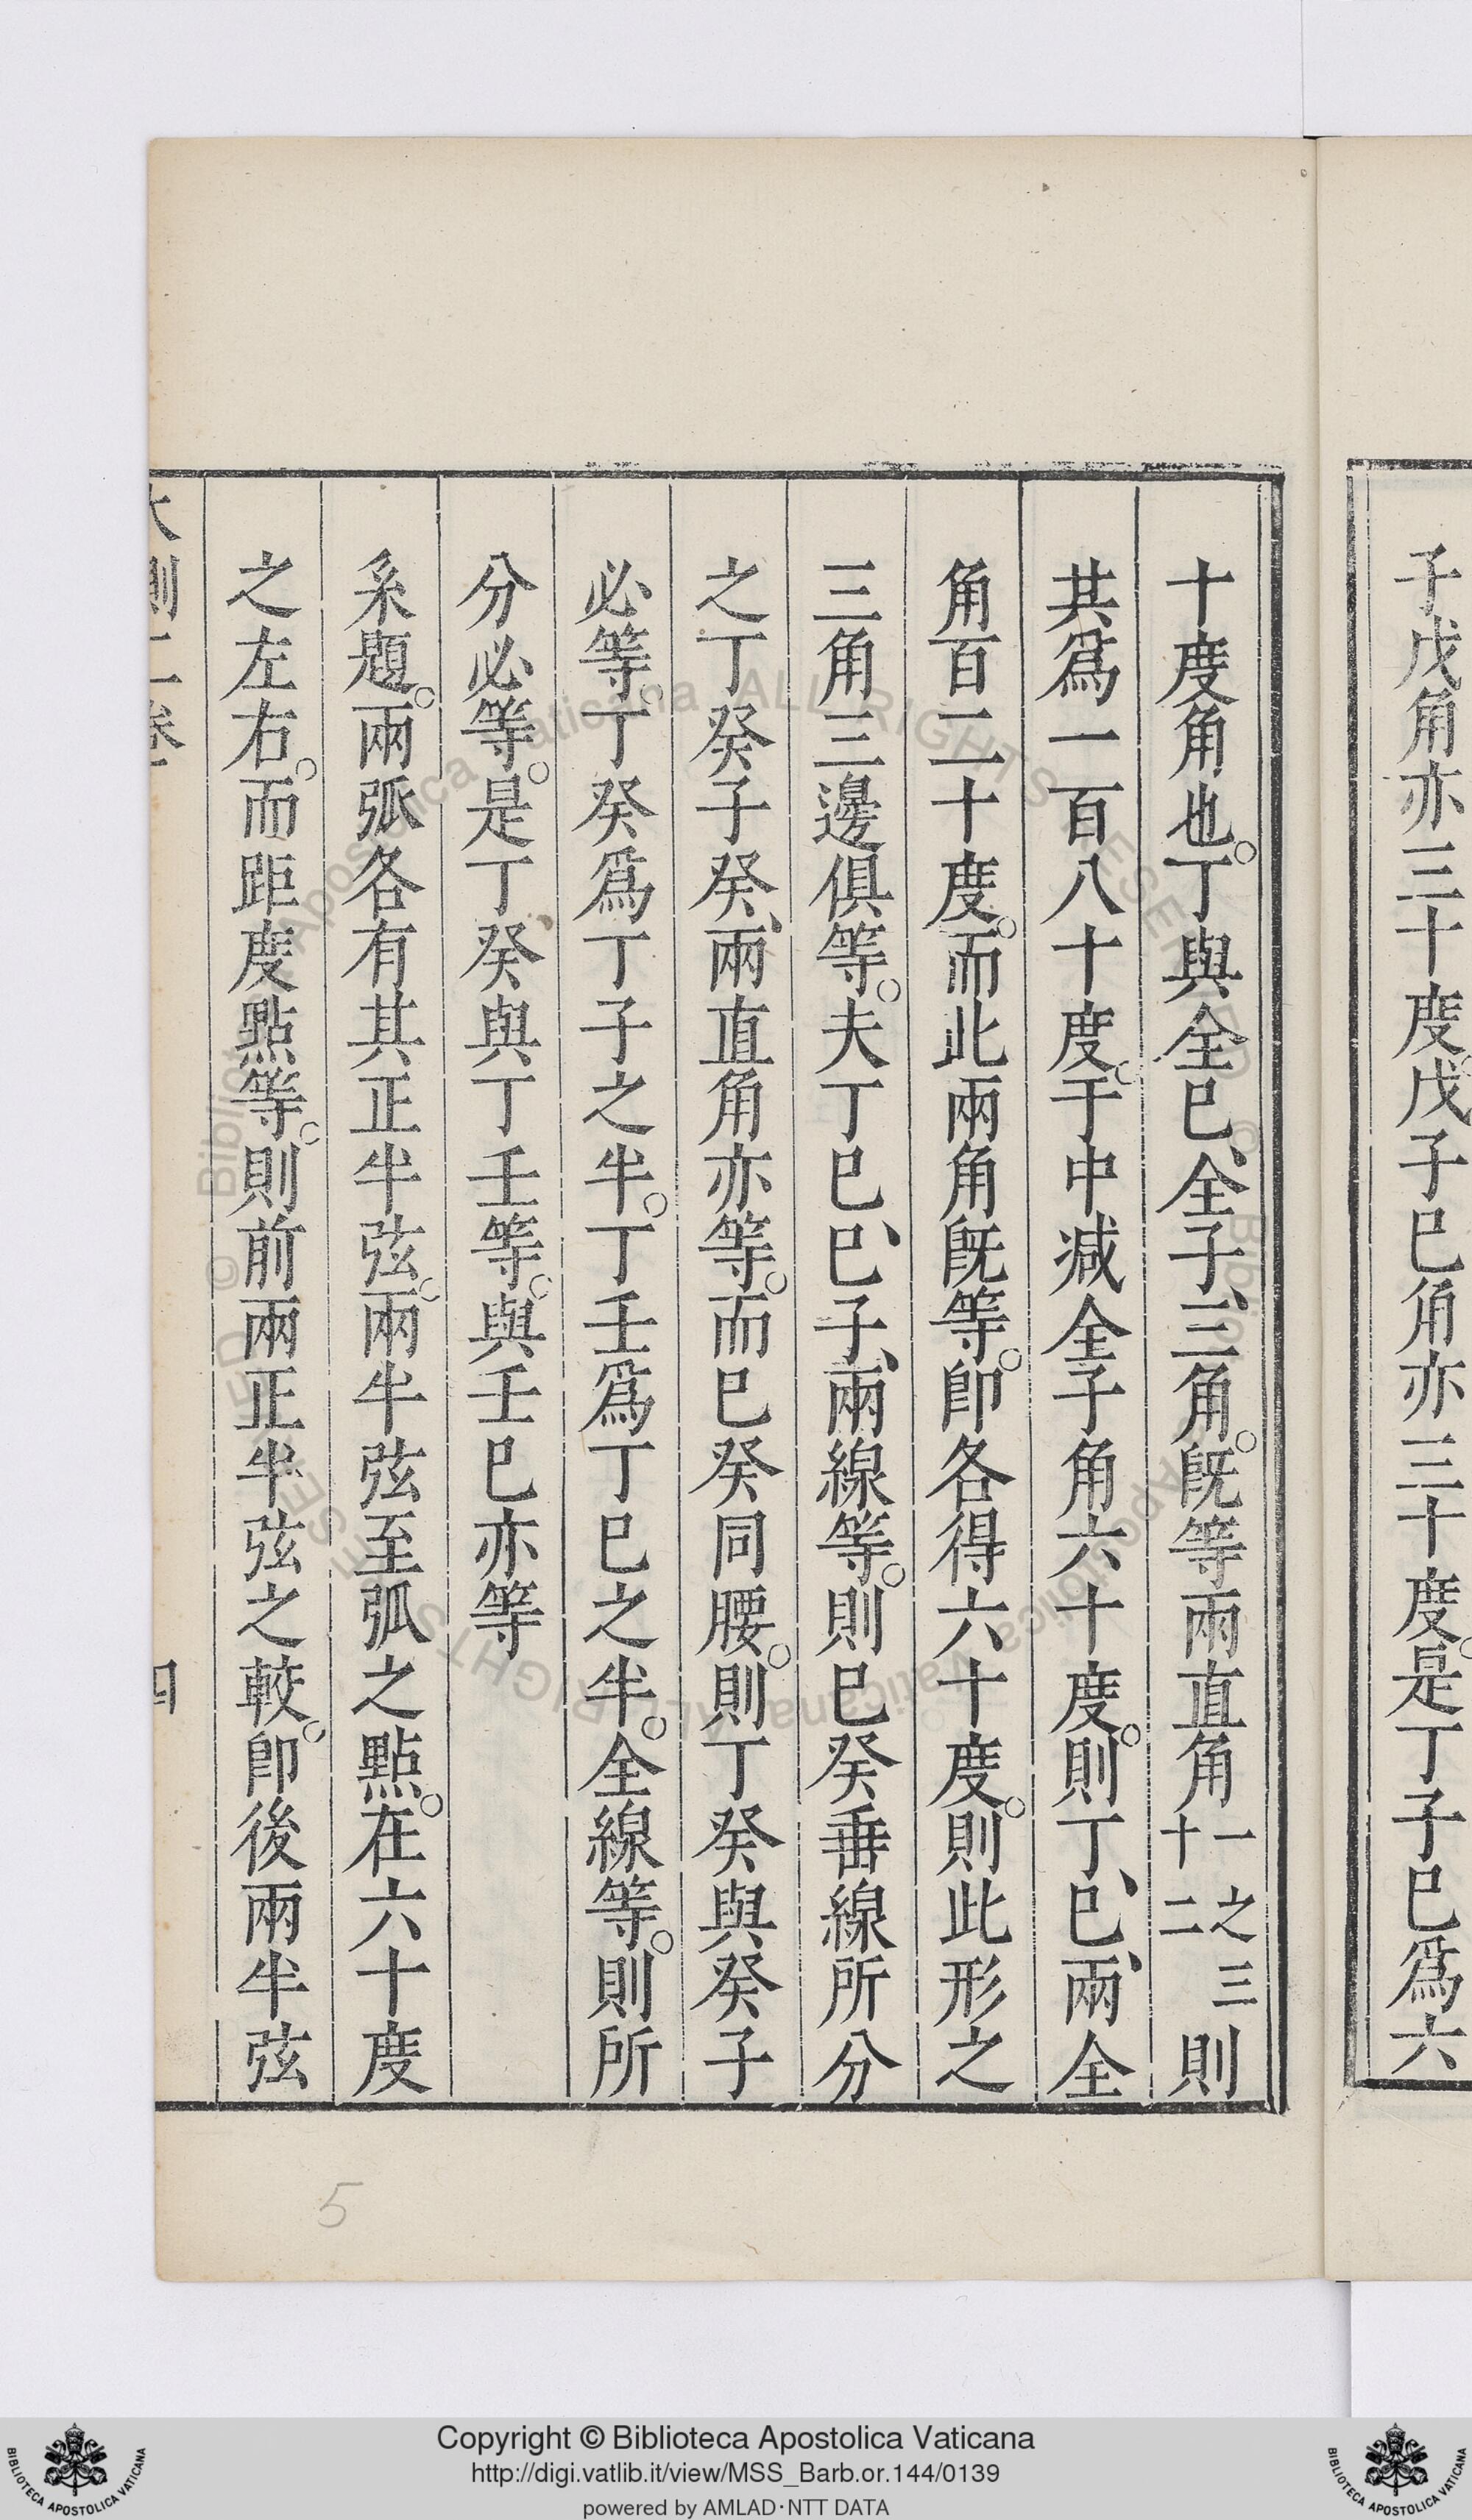 子戊角亦三十度。戊子巳角亦三十度。是丁子巳爲六
十度角也。丁與全巳、全子、三角。旣等兩直角一之三十二則
共爲一百八十度。于中减全子角六十度。則丁、巳、兩全
角百二十度。而此兩角旣等。卽各得六十度。則此形之
三角三邊俱等。夫丁巳、巳子、兩線等。則巳癸垂線所分
之丁癸子癸、兩直角亦等。而巳癸同腰。則丁癸與癸子
必等。丁癸爲丁子之半。丁壬爲丁巳之半。全線等。則所
分必等。是丁癸與丁壬等。與壬巳亦等
系題。兩弧各有其正半弦。兩半弦至弧之點。在六十度
之左右。而距度點等。則前兩正半弦之較。卽後兩半弦
大測二卷
四
5
Copyright © Biblioteca Apostolica Vaticana
http://digi.vatlib.it/view/MSS_Barb.or.144/0139
powered by AMLAD·NTT DATA
BIBLIOTECA APOSTOLICA VATICANA
BIBLIOTECA APOSTOLICA VATICANA